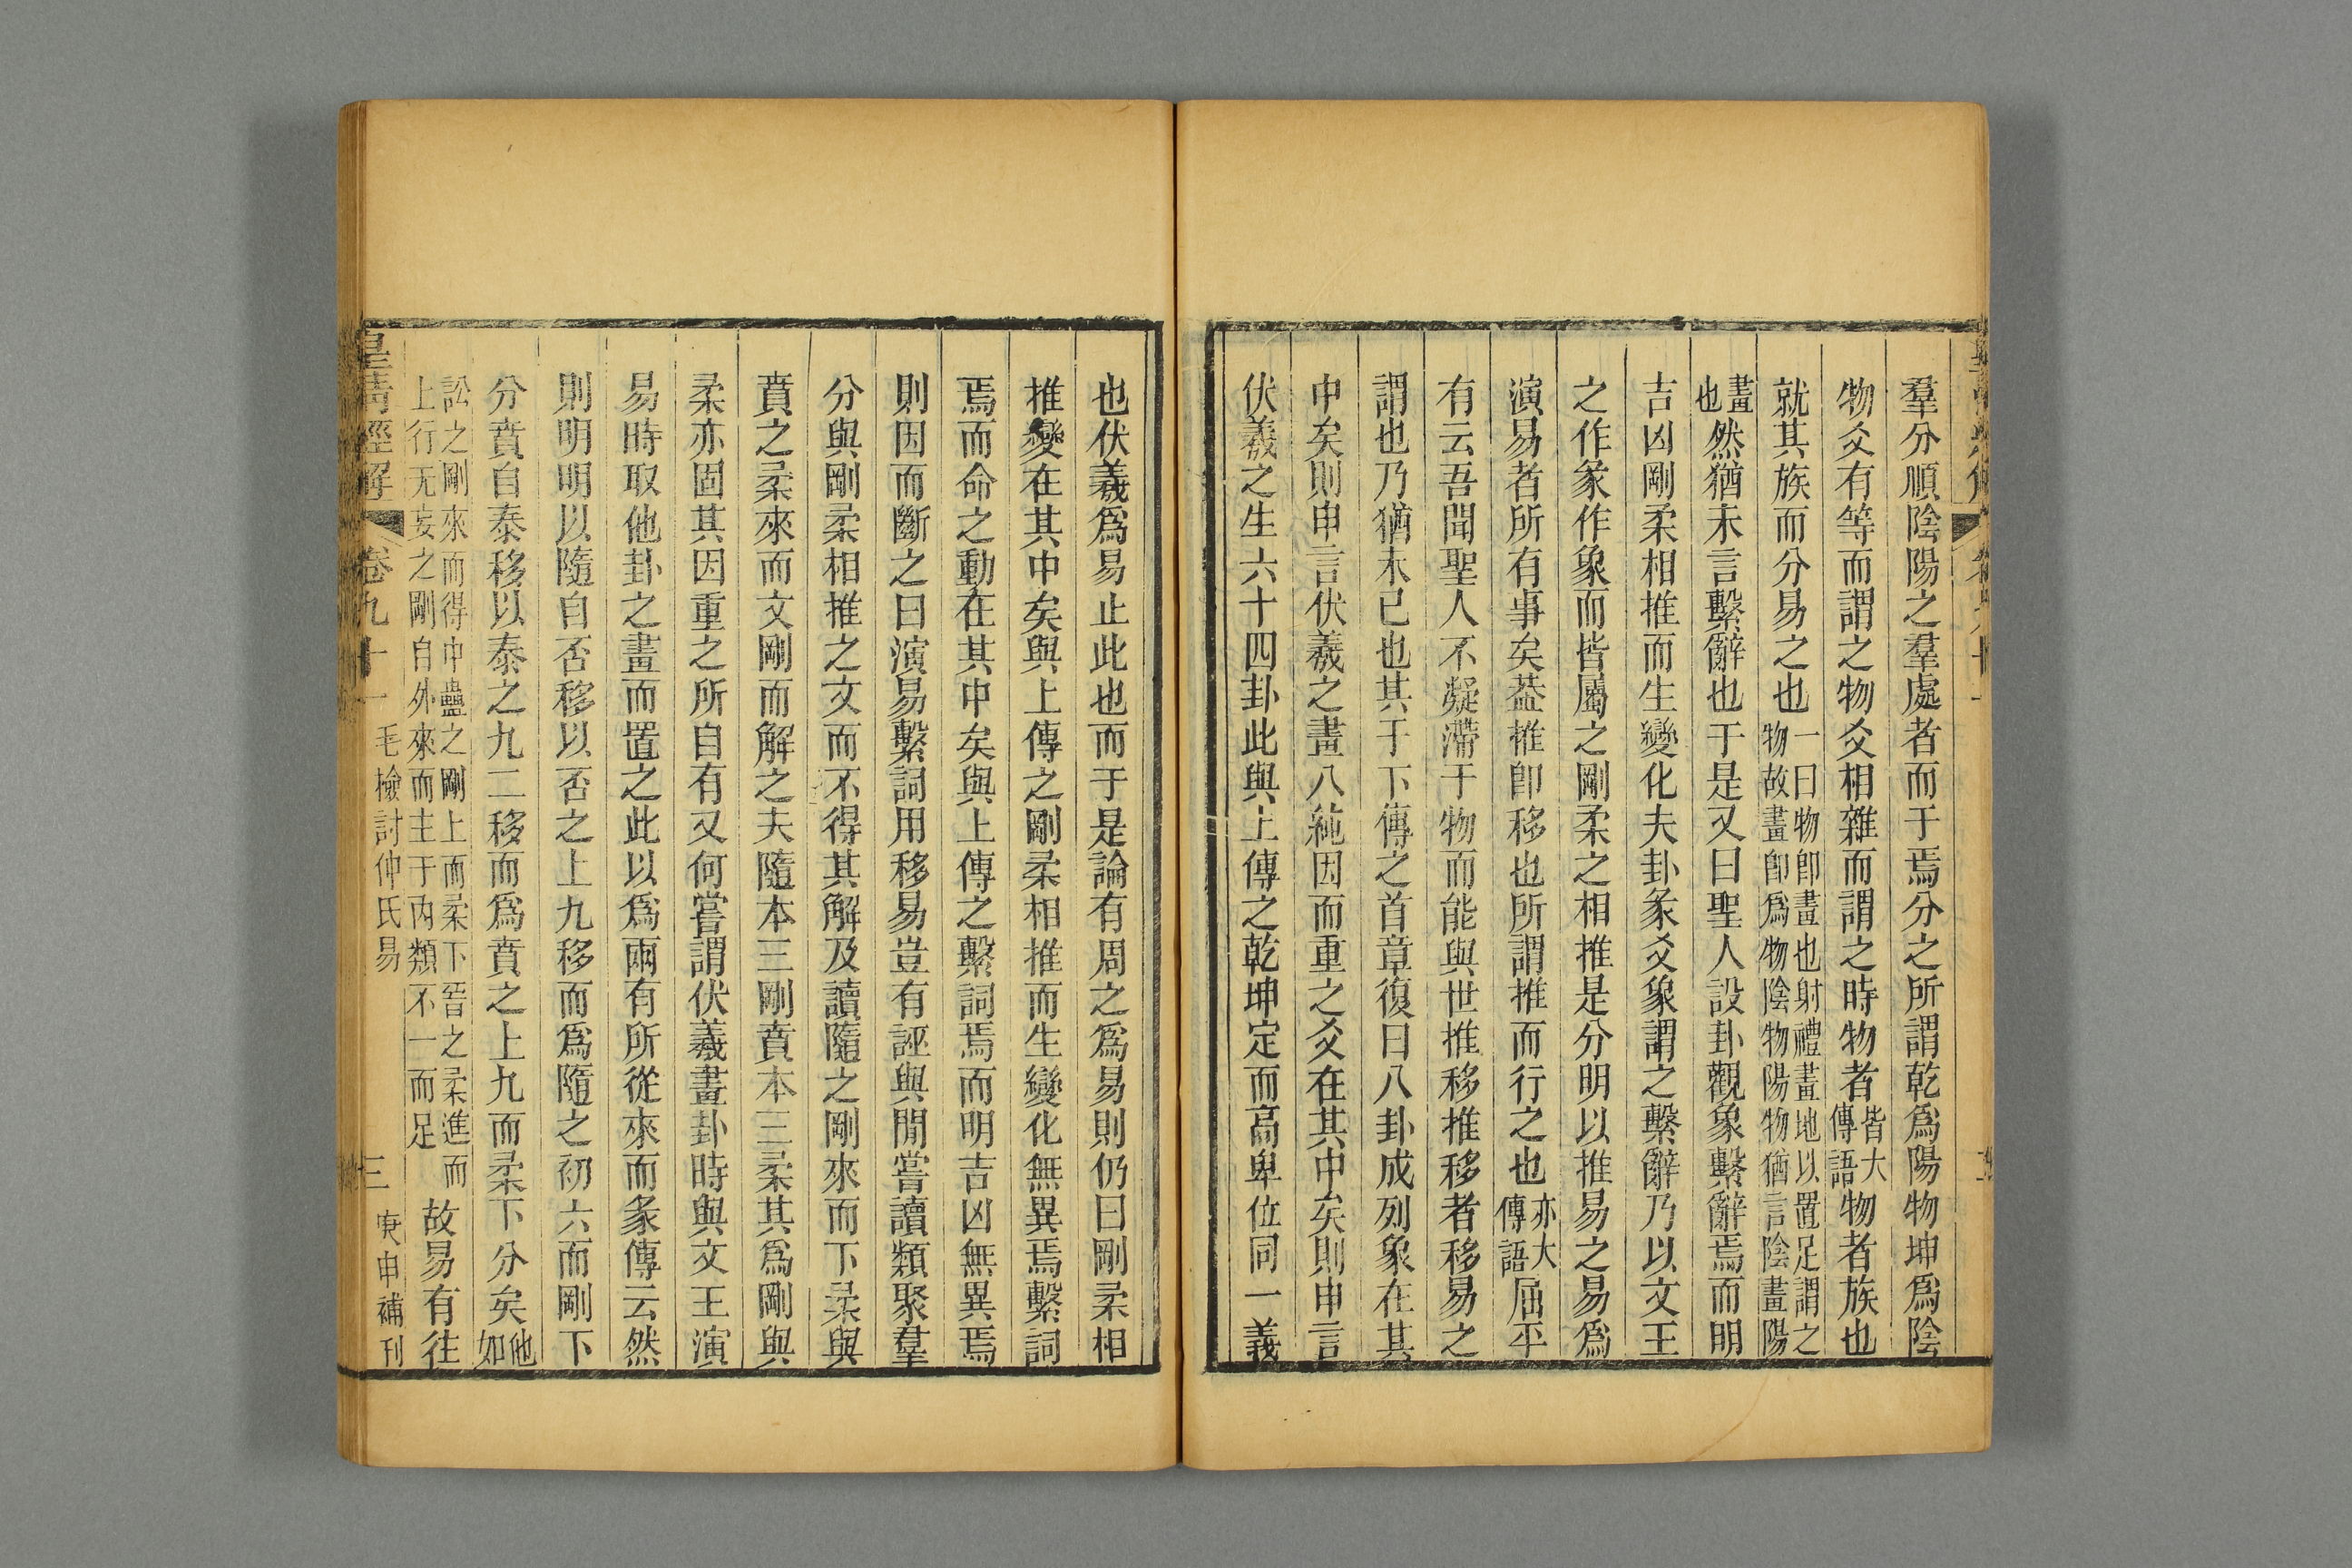 羣分順陰陽之羣處者而于焉分之所謂乾爲陽物坤爲陰
物爻有等而謂之物爻相雜而謂之時物者皆大傳語物者族也
就其族而分易之也一曰物卽畫也射禮畫地以置足謂之物故畫卽爲物陰物陽物猶言陰畫陽
畫也然猶未言繫辭也于是又曰聖人設卦觀象繫辭焉而明
吉凶剛柔相推而生變化夫卦彖爻象謂之繫辭乃以文王
之作彖作象而皆屬之剛柔之相推是分明以推易之易爲
演易者所有事矣葢推卽移也所謂推而行之也亦大傳語屈平
有云吾聞聖人不凝滯于物而能與世推移推移者移易之
謂也乃猶未已也其于下傳之首章復曰八卦成列象在其
中矣則申言伏羲之畫八純因而重之爻在其中矣則申言
伏羲之生六十四卦此與上傳之乾坤定而高卑位同一義
也伏羲爲易止此也而于是論有周之爲易則仍曰剛柔相
推變在其中矣與上傳之剛柔相推而生變化無異焉繫詞
焉而命之動在其中矣與上傳之繫詞焉而明吉凶無異焉
則因而斷之曰演易繫詞用移易豈有誣與閒嘗讀類聚羣
分與剛柔相推之文而不得其解及讀隨之剛來而下柔與
賁之柔來而文剛而解之夫隨本三剛賁本三柔其爲剛與
柔亦固其因重之所自有又何嘗謂伏羲畫卦時與文王演
易時取他卦之畫而置之此以爲兩有所從來而彖傳云然
則明明以隨自否移以否之上九移而爲隨之初六而剛下
分賁自泰移以泰之九二移而爲賁之上九而柔下分矣他如
訟之剛來而得中蠱之剛上而柔下晉之柔進而上行无妄之剛自外來而主于內類不一而足故易有往
皇清經解 卷九十一 毛檢討仲氏易 三 庚申補刊